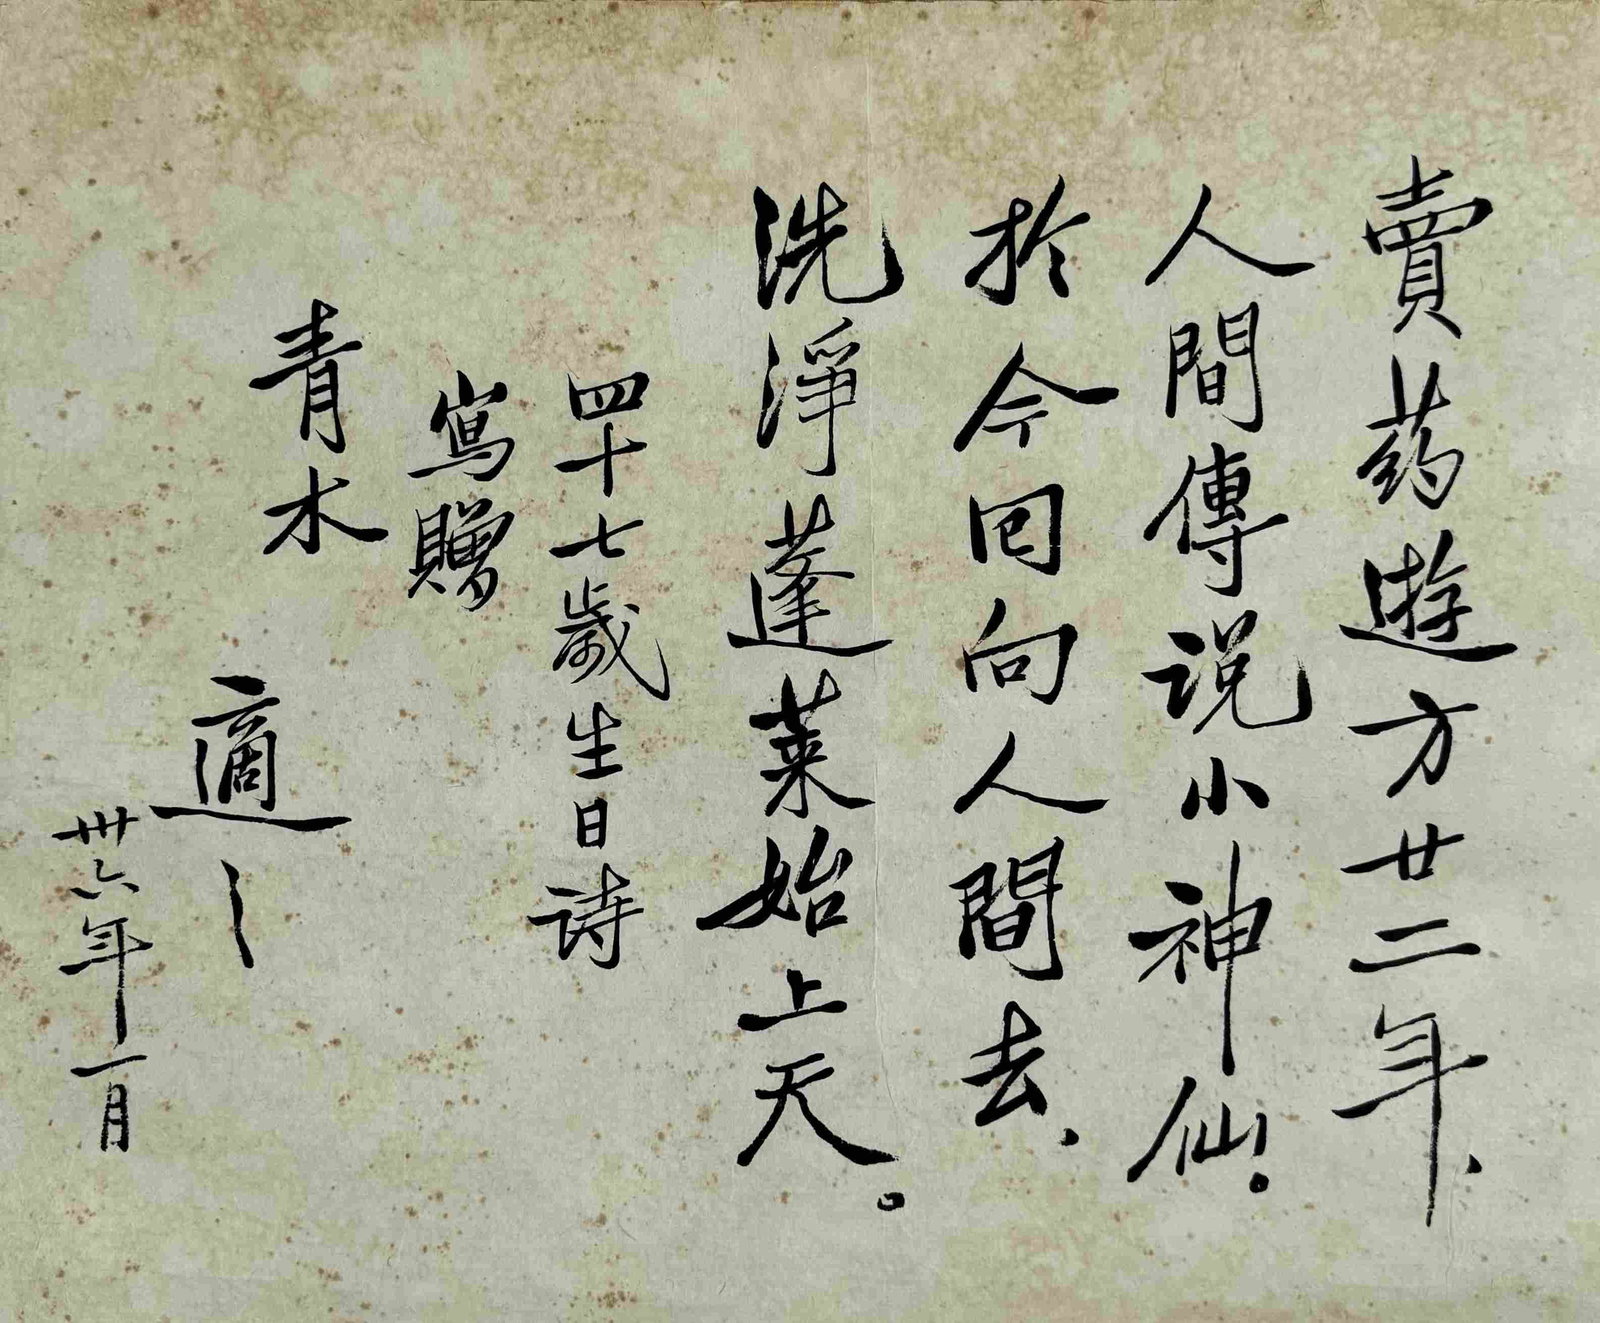 賣药遊方廿二年、
人間傳说小神仙。
於今回向人間去、
洗淨蓬萊始上天。
四十七歲生日詩
寫贈
青木
適之
卅六年一月